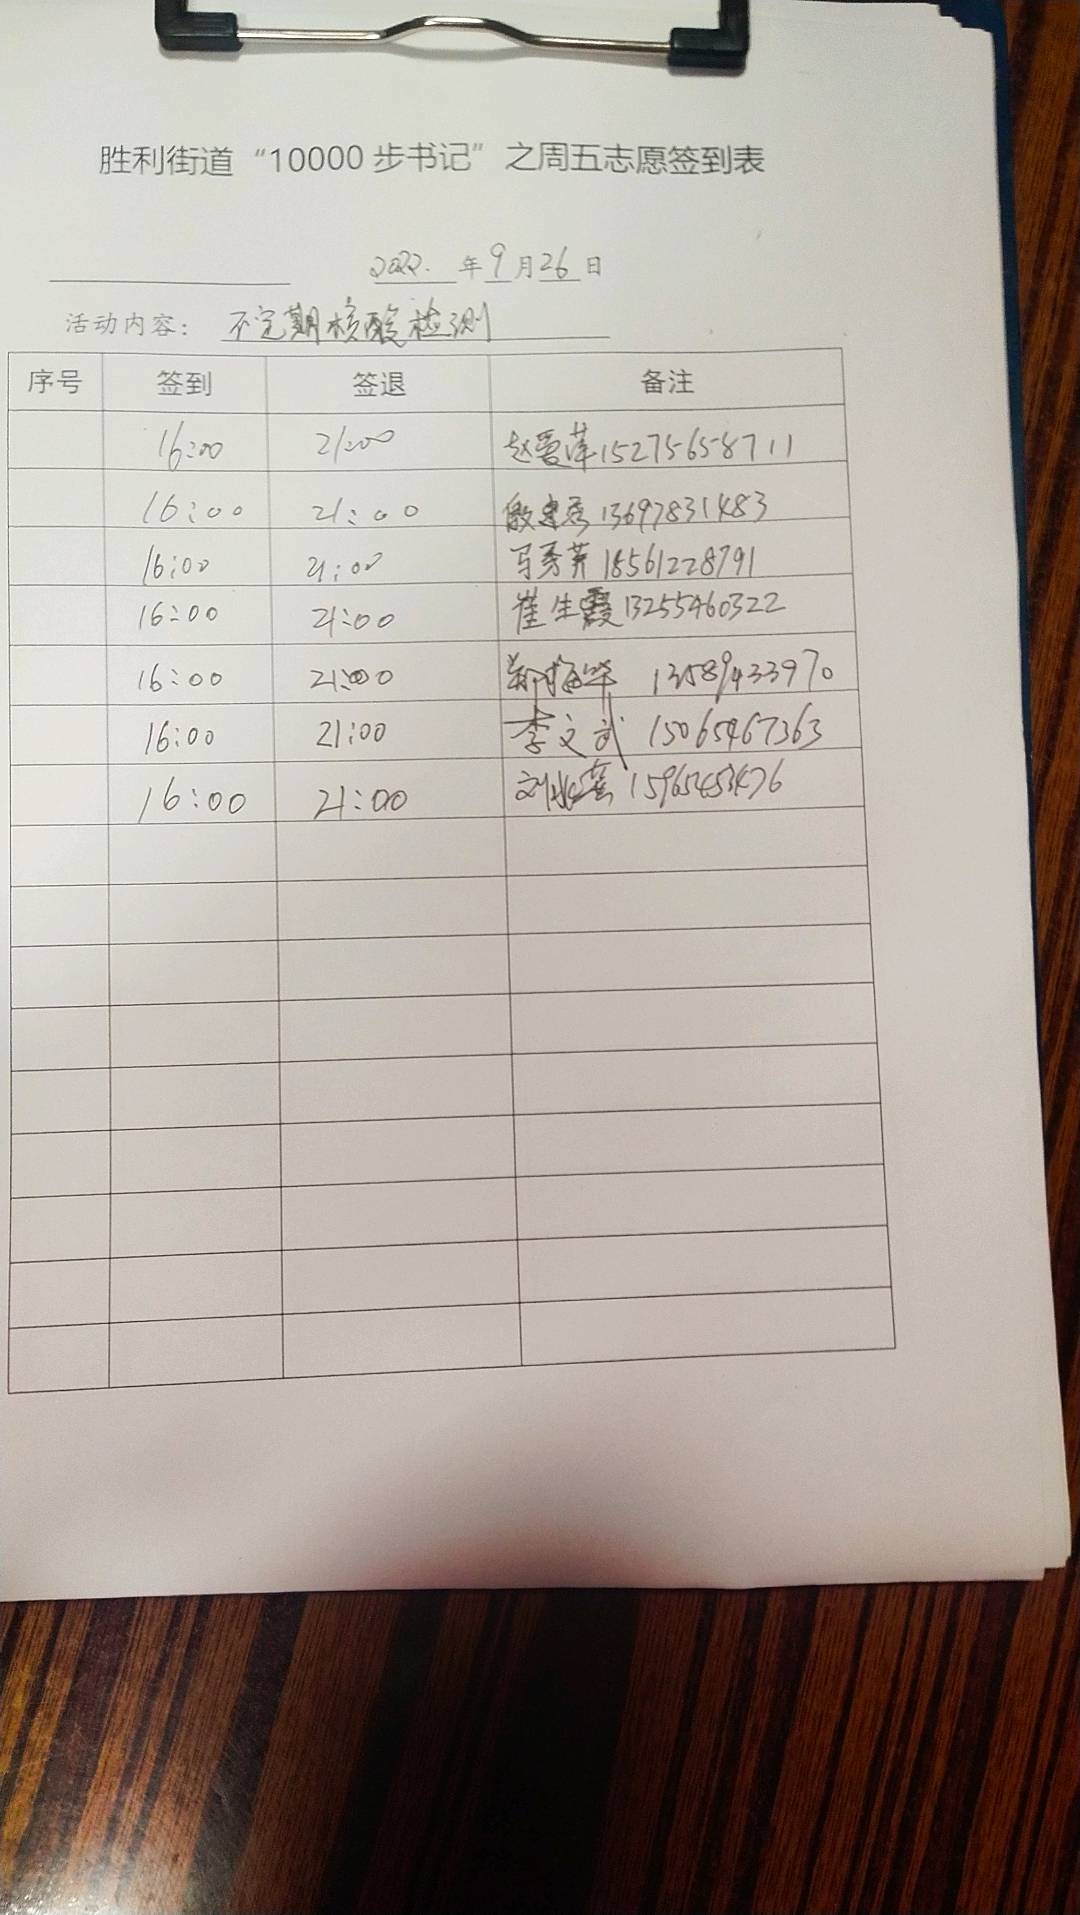 胜利街道“10000步书记”之周五志愿签到表
2022. 年 9 月 26 日
活动内容： 不定期核酸检测
序号 签到 签退 备注
16:00 21:00 赵爱萍 15275658711
16:00 21:00 殷建秀 13697831483
16:00 21:00 马秀芳 18561228791
16:00 21:00 崔生霞 13255460322
16:00 21:00 郭梅华 13589433970
16:00 21:00 李文武 15065467363
16:00 21:00 刘 15965453476